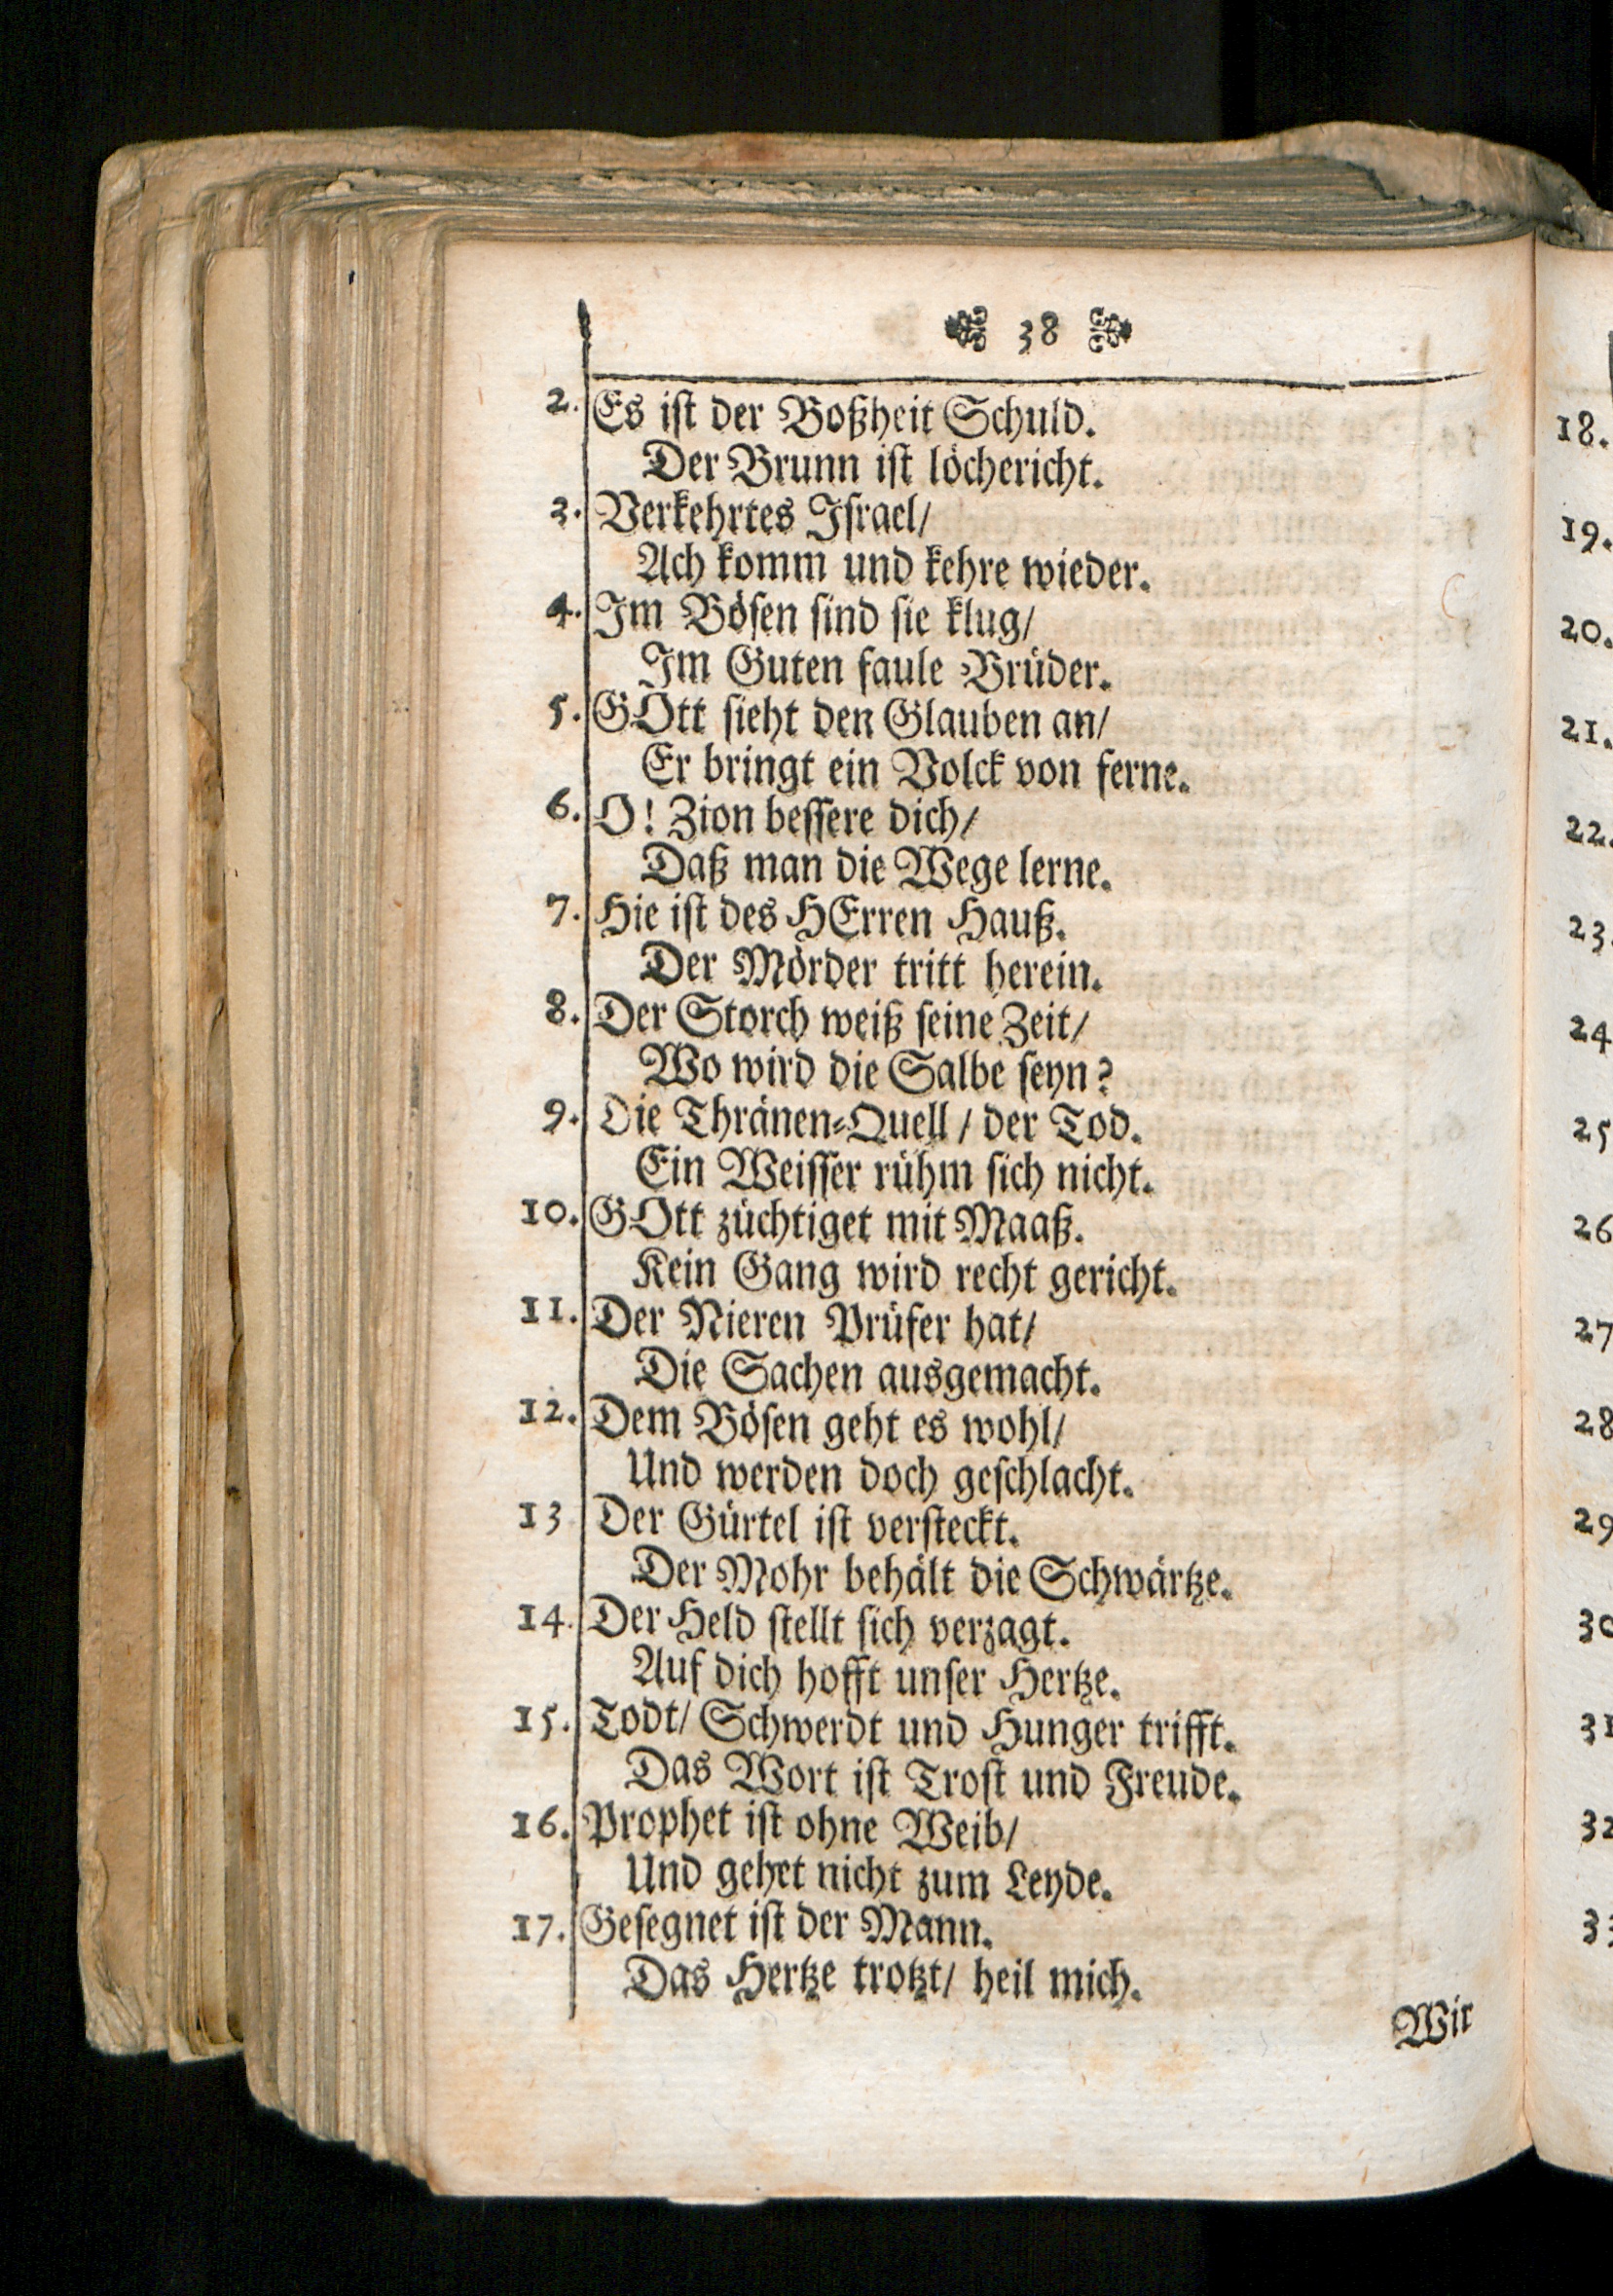 38
2. Es ist der Boßheit Schuld.
Der Brunn ist löchericht.
3. Verkehrtes Israel/
Ach komm und kehre wieder.
4. Im Bösen sind sie klug/
Im Guten faule Brüder.
5. GOtt sieht den Glauben an/
Er bringt ein Volck von ferne.
6. O! Zion bessere dich/
Daß man die Wege lerne.
7. Hie ist des HErren Hauß.
Der Mörder tritt herein.
8. Der Storch weiß seine Zeit/
Wo wird die Salbe seyn?
9. Die Thränen-Quell/ der Tod.
Ein Weisser rühm sich nicht.
10. GOtt züchtiget mit Maaß.
Kein Gang wird recht gericht.
11. Der Nieren Prüfer hat/
Die Sachen ausgemacht.
12. Dem Bösen geht es wohl/
Und werden doch geschlacht.
13 Der Gürtel ist versteckt.
Der Mohr behält die Schwärtze.
14. Der Held stellt sich verzagt.
Auf dich hofft unser Hertze.
15. Todt/ Schwerdt und Hunger trifft.
Das Wort ist Trost und Freude.
16. Prophet ist ohne Weib/
Und gehet nicht zum Leyde.
17. Gesegnet ist der Mann.
Das Hertze trotzt/ heil mich.
Wir
18.
19.
20.
21.
22.
23.
24
25
26
27
28
29
30
31
32
33